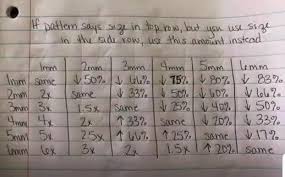 If pattern says size in top row, but you use size
in the side row, use this amount instead
1mm 2mm 3mm 4mm 5mm 6mm
1mm same ↓50% ↓66% 75% ↓80% ↓83%
2mm 2x same ↓33% ↓50% ↓60% ↓66%
3mm 3x 1.5x same ↓25% ↓40% ↓50%
4mm 4x 2x ↑33% same ↓20% ↓33%
5mm 5x 2.5x ↑66% ↑25% same ↓17%
6mm 6x 3x 2x 1.5x ↑20% same